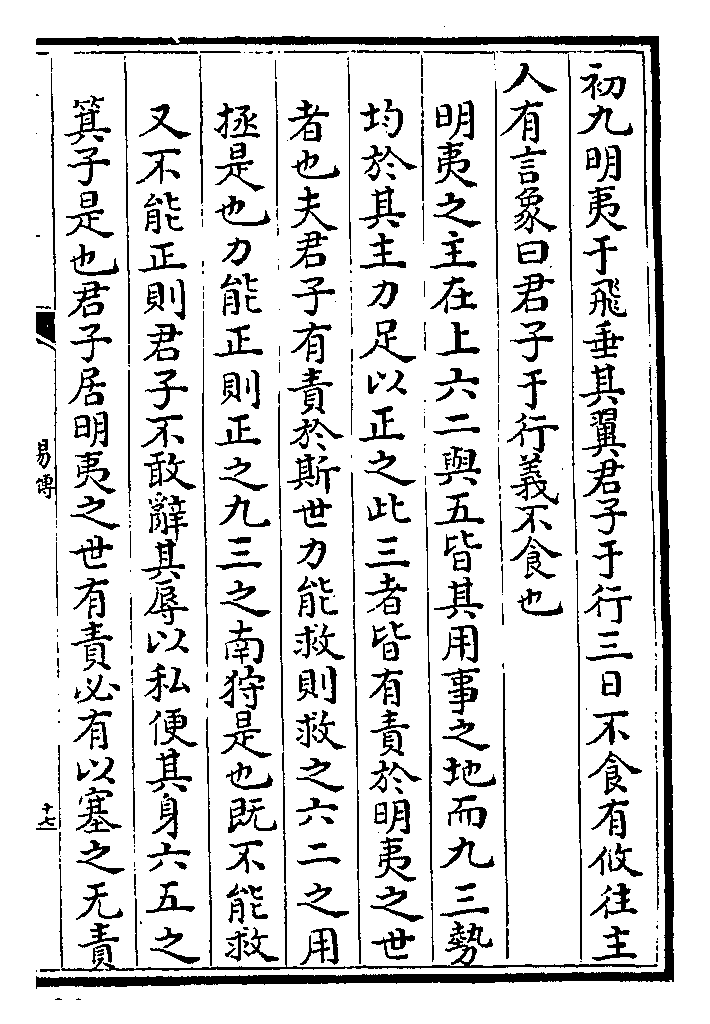 初九明夷于飛垂其翼君子于行三日不食有攸往主
人有言象曰君子于行義不食也
明夷之主在上六二與五皆其用事之地而九三勢
均於其主力足以正之此三者皆有責於明夷之世
者也夫君子有責於斯世力能救則救之六二之用
拯是也力能正則正之九三之南狩是也既不能救
又不能正則君子不敢辭其辱以私便其身六五之
箕子是也君子居明夷之世有責必有以塞之无責
易傳
十七